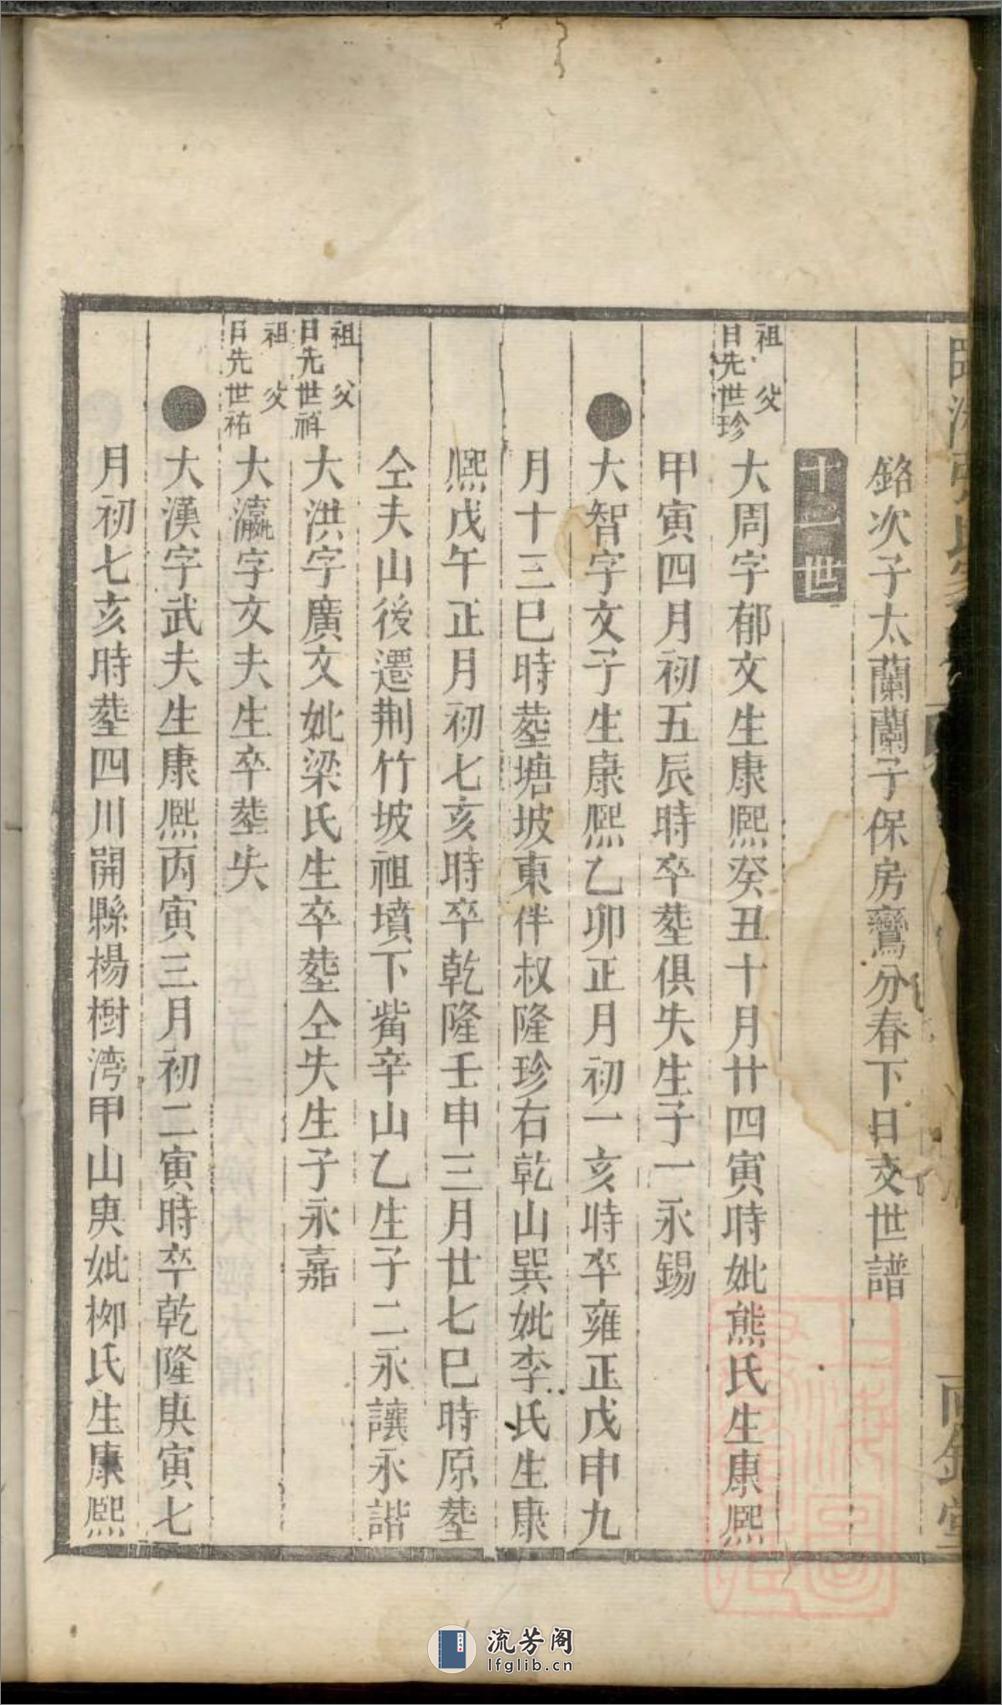 銘次子太蘭蘭子保房鸞分春下日文世譜
十二世
祖父
日先世珍
大周字郁文生康熙癸丑十月廿四寅時妣熊氏生康熙
甲寅四月初五辰時卒塟俱失生子一永錫
大智字文子生康熙乙卯正月初一亥時卒雍正戊申九
月十三巳時塟塘坡東伴叔隆珍右乾山巽妣李氏生康
熙戊午正月初七亥時卒乾隆壬申三月廿七巳時原塟
仝夫山後遷荆竹坡祖墳下觜辛山乙生子二永讓永諧
祖父
日先世禎
大洪字廣文妣梁氏生卒塟仝失生子永嘉
祖父
日先世祐
大瀛字文夫生卒塟失
大漢字武夫生康熙丙寅三月初二寅時卒乾隆庚寅七
月初七亥時塟四川開縣楊樹湾甲山庚妣柳氏生康熙
流芳阁
lfglib.cn